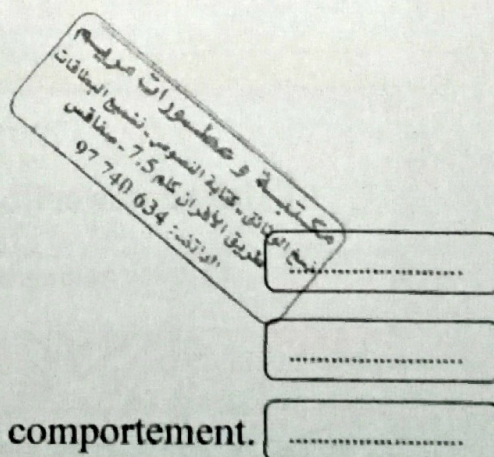 مكتبة و عطورات مريم
نسخ الوثائق - كتابة النصوص - تشحيع البطاقات
طريق الأفران كلم 7.5 - صفاقس
الهاتف: 97 740 634
....................
....................
comportement. ....................